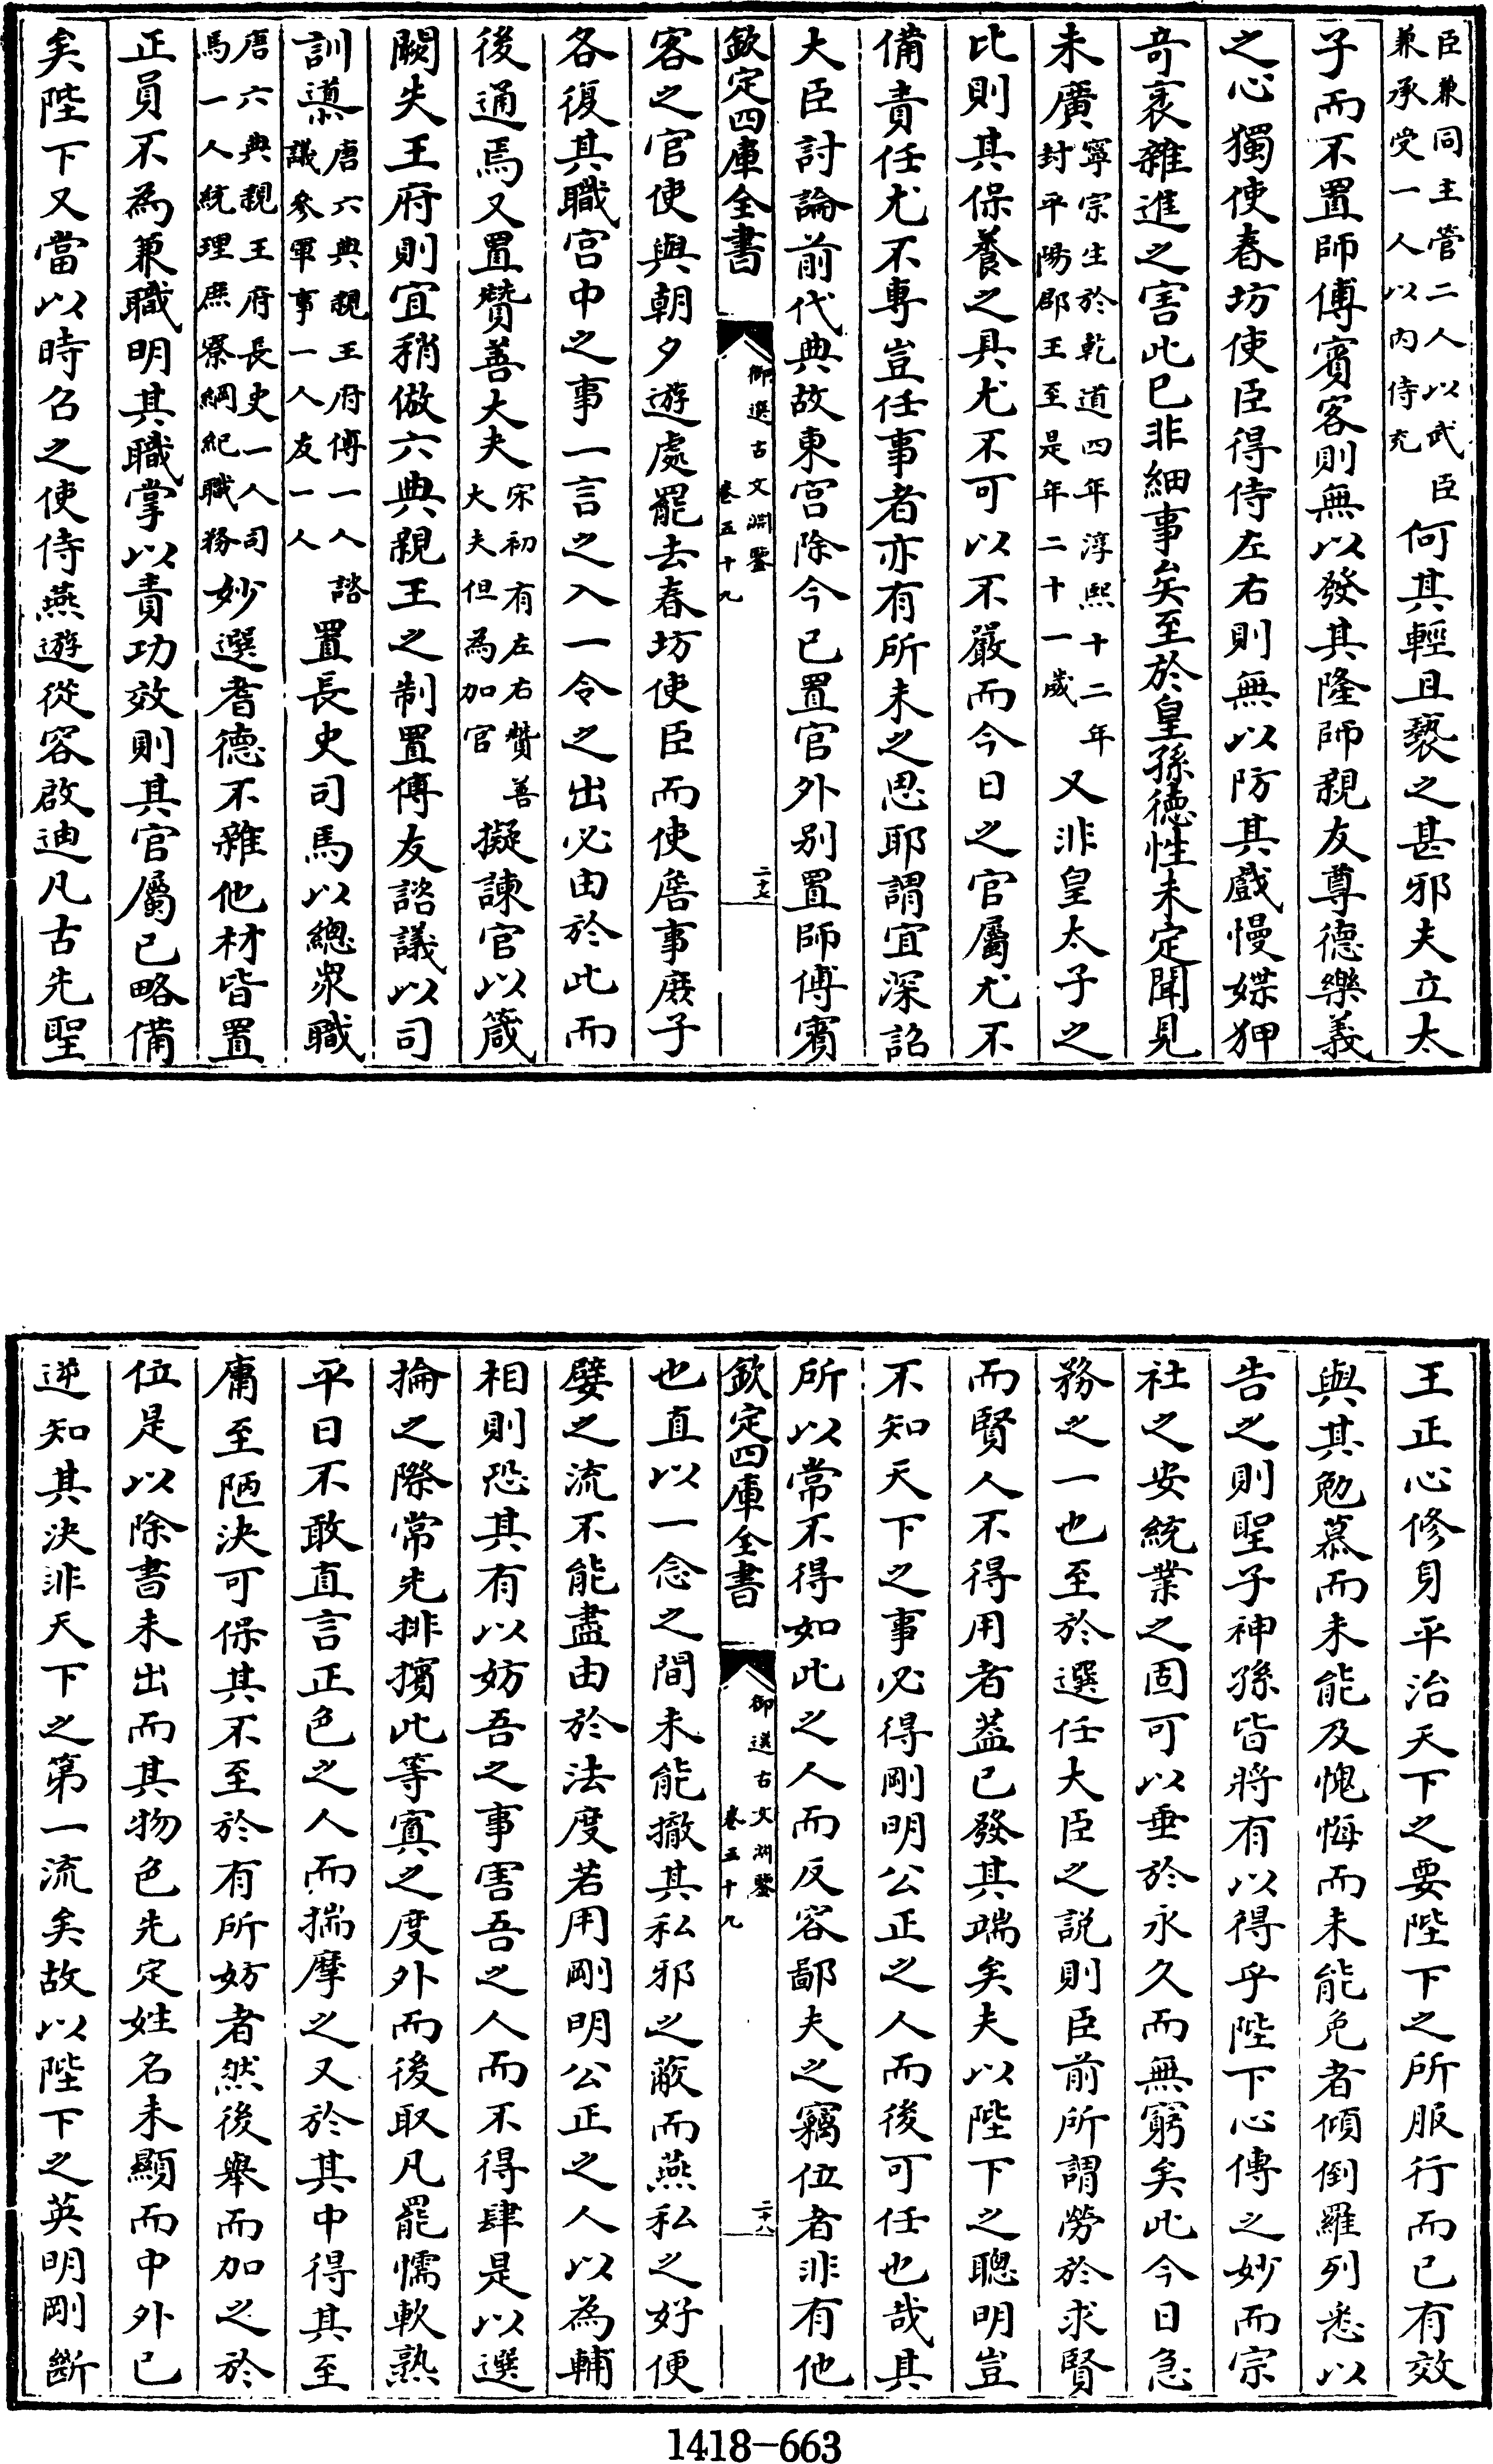 臣兼同主管二人以武臣
兼承受一人以内侍充
何其輕且褻之甚邪夫立太
子而不置師傅賓客則無以發其隆師親友尊德樂義
之心獨使春坊使臣得侍左右則無以防其戲慢媟狎
奇衺雜進之害此已非細事矣至於皇孫徳性未定聞見
未廣
寧宗生於乾道四年淳熙十二年
封平陽郡王至是年二十一歲
又非皇太子之
比則其保養之具尤不可以不嚴而今日之官屬尤不
備責任尤不専豈任事者亦有所未之思耶謂宜深詔
大臣討論前代典故東宮除今已置官外别置師傅賓
欽定四庫全書
御選古文淵鑒
卷五十九
二十七
客之官使與朝夕遊處罷去春坊使臣而使詹事庶子
各復其職宮中之事一言之入一令之出必由於此而
後通焉又置贊善大夫
宋初有左右贊善
大夫但為加官
擬諫官以箴
闕失王府則宜稍倣六典親王之制置傅友諮議以司
訓導
唐六典親王府傅一人諮
議參軍事一人友一人
置長史司馬以總衆職
唐六典親王府長史一人司
馬一人統理府寮綱紀職務
妙選耆德不雜他材皆置
正員不為兼職明其職掌以責功效則其官屬已略備
矣陛下又當以時召之使侍燕遊從容啟迪凡古先聖
王正心修身平治天下之要陛下之所服行而已有效
與其勉慕而未能及愧悔而未能免者傾倒羅列悉以
告之則聖子神孫皆將有以得乎陛下心傳之妙而宗
社之安統業之固可以垂於永久而無窮矣此今日急
務之一也至於選任大臣之説則臣前所謂勞於求賢
而賢人不得用者葢已發其端矣夫以陛下之聰明豈
不知天下之事必得剛明公正之人而後可任也哉其
所以常不得如此之人而反容鄙夫之竊位者非有他
欽定四庫全書
御選古文淵鑒
卷五十九
二十八
也直以一念之間未能撤其私邪之蔽而燕私之好便
嬖之流不能盡由於法度若用剛明公正之人以為輔
相則恐其有以妨吾之事害吾之人而不得肆是以選
掄之際常先排擯此等寘之度外而後取凡罷懦軟熟
平日不敢直言正色之人而揣摩之又於其中得其至
庸至陋決可保其不至於有所妨者然後舉而加之於
位是以除書未出而其物色先定姓名未顯而中外已
逆知其決非天下之第一流矣故以陛下之英明剛斷
1418-663